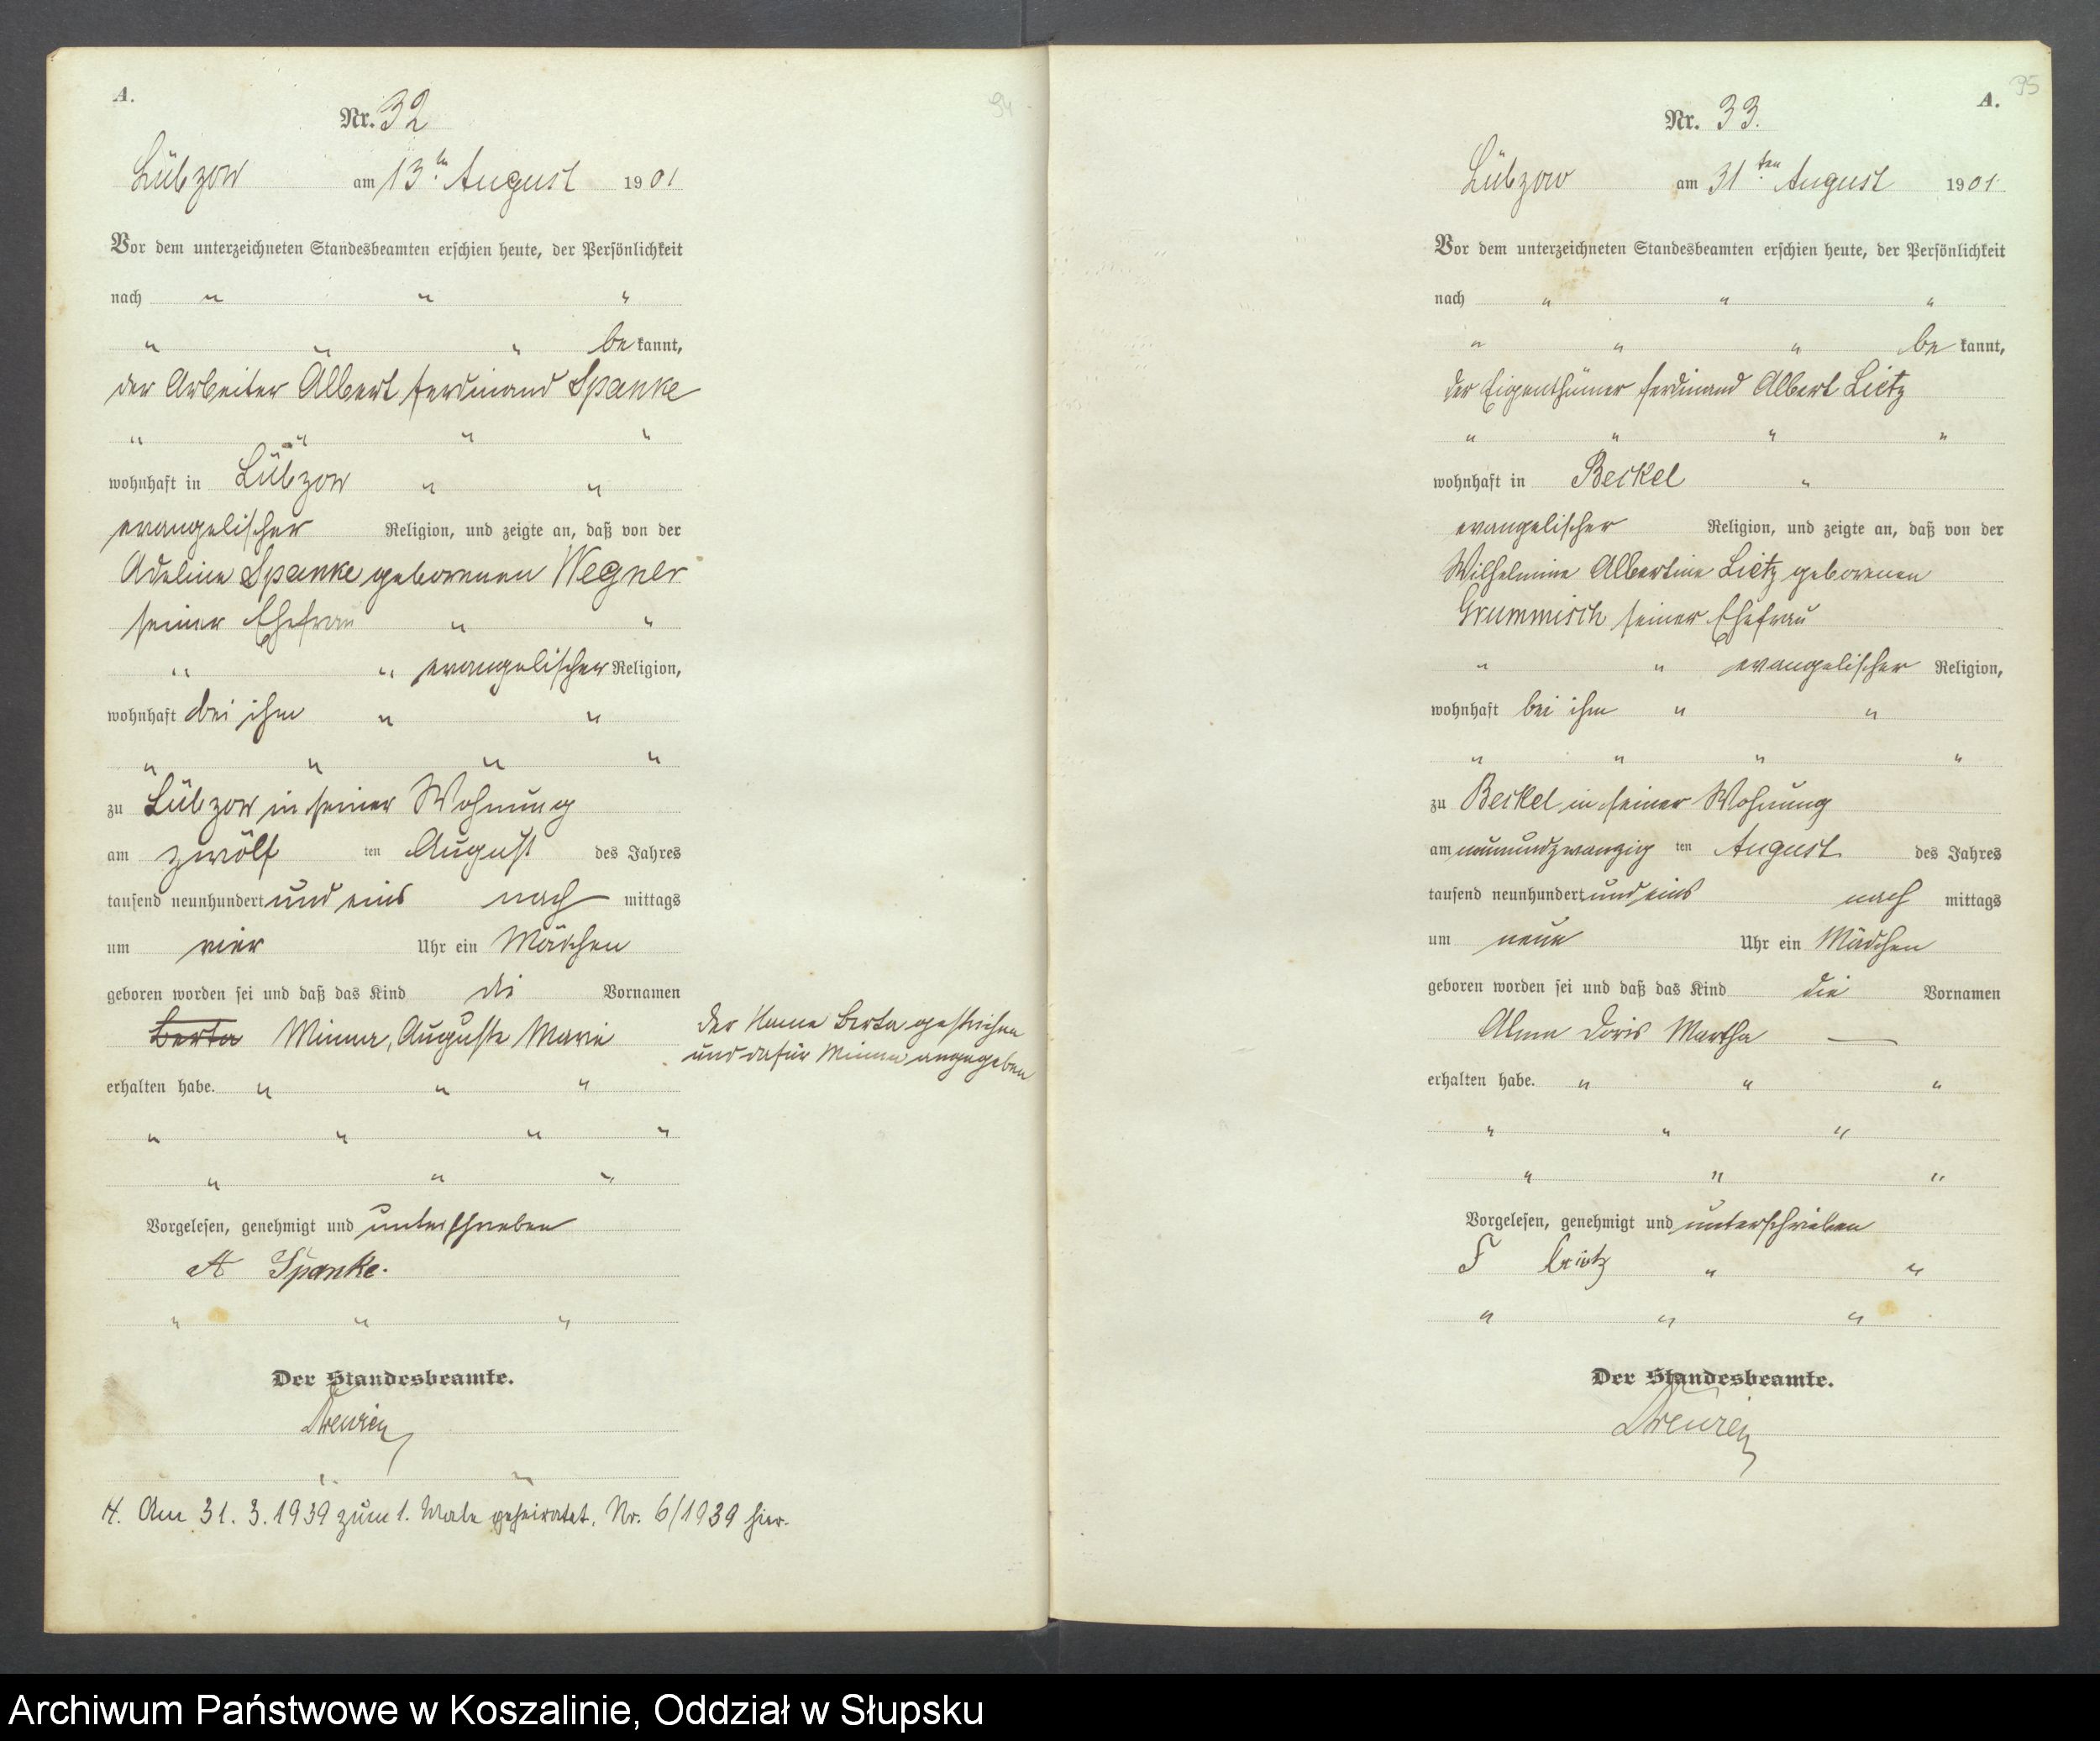 A.
Nr. 32
Lübzow am 13ten August 1901
Vor dem unterzeichneten Standesbeamten erschien heute, der Persönlichkeit
nach " " "
" " " be kannt,
der Arbeiter Albert Ferdinand Spanke
" " " "
wohnhaft in Lübzow " "
evangelischer Religion, und zeigte an, daß von der
Adeline Spanke geborenen Wegner
seiner Ehefrau " "
" " evangelischer Religion,
wohnhaft bei ihm " "
" " " "
zu Lübzow in seiner Wohnung
am zwölf ten August des Jahres
tausend neunhundert und eins nach mittags
um vier Uhr ein Mädchen
geboren worden sei und daß das Kind die Vornamen
Berta Minna, Auguste Marie
der Name Berta gestrichen
und dafür Minna angegeben
erhalten habe. " " "
" " " "
" " "
Vorgelesen, genehmigt und unterschrieben
A Spanke.
" " "
Der Standesbeamte.
" "
H. Am 31. 3. 1939 zum 1. Male geheiratet. Nr. 6/1939 hier.
94
95
A.
Nr. 33.
Lübzow am 31ten August 1901
Vor dem unterzeichneten Standesbeamten erschien heute, der Persönlichkeit
nach " " "
" " " be kannt,
der Eigenthümer Ferdinand Albert Lietz
" " " "
wohnhaft in Beckel "
evangelischer Religion, und zeigte an, daß von der
Wilhelmine Albertine Lietz geborenen
Grummisch seiner Ehefrau
" " evangelischer Religion,
wohnhaft bei ihm " "
" " " "
zu Beckel in seiner Wohnung
am neunundzwanzig ten August des Jahres
tausend neunhundert und eins nach mittags
um neun Uhr ein Mädchen
geboren worden sei und daß das Kind die Vornamen
Alma Doris Martha —
erhalten habe. " " "
" " "
" " "
Vorgelesen, genehmigt und unterschrieben
F Lietz " "
" " "
Der Standesbeamte.
Archiwum Państwowe w Koszalinie, Oddział w Słupsku